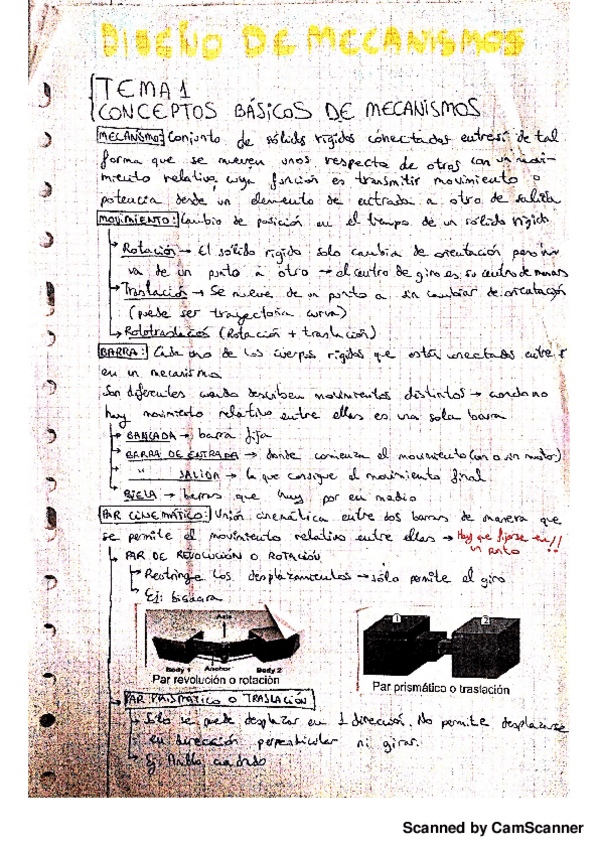 DISEÑO DE MECANISMOS
TEMA 1
CONCEPTOS BÁSICOS DE MECANISMOS
MECANISMO: Conjunto de sólidos rígidos conectados entre sí de tal
forma que se mueven unos respecto de otros con un movi-
miento relativo, cuya función es transmitir movimiento o
potencia desde un elemento de entrada a otro de salida
MOVIMIENTO: Cambio de posición en el tiempo de un sólido rígido
Rotación → El sólido rígido solo cambia de orientación pero no
va de un punto a otro → el centro de giro es su centro de masas
Traslación → Se mueve de un punto a sin cambiar de orientación
(puede ser trayectoria curva)
Rototraslación (Rotación + traslación)
BARRA: Cada uno de los cuerpos rígidos que están conectados entre sí
en un mecanismo
Son diferentes cuando describen movimientos distintos → cuando no
hay movimiento relativo entre ellas es una sola barra
BANCADA → barra fija
BARRA DE ENTRADA → donde comienza el movimiento (con o sin motor)
" SALIDA → la que consigue el movimiento final
BIELA → barras que hay por en medio
PAR CINEMÁTICO: Unión cinemática entre dos barras de manera que
se permite el movimiento relativo entre ellas → Hay que fijarse en!!
un punto
PAR DE REVOLUCIÓN O ROTACIÓN
Restringe los desplazamientos → sólo permite el giro
Ej: bisagra
Axis
Body 1 Anchor Body 2
Par revolución o rotación
1 2
Par prismático o traslación
PAR PRISMÁTICO O TRASLACIÓN
Sólo se puede desplazar en 1 dirección. No permite desplazarse
en dirección perpendicular ni girar.
Ej: Anillo cuadrado
Scanned by CamScanner